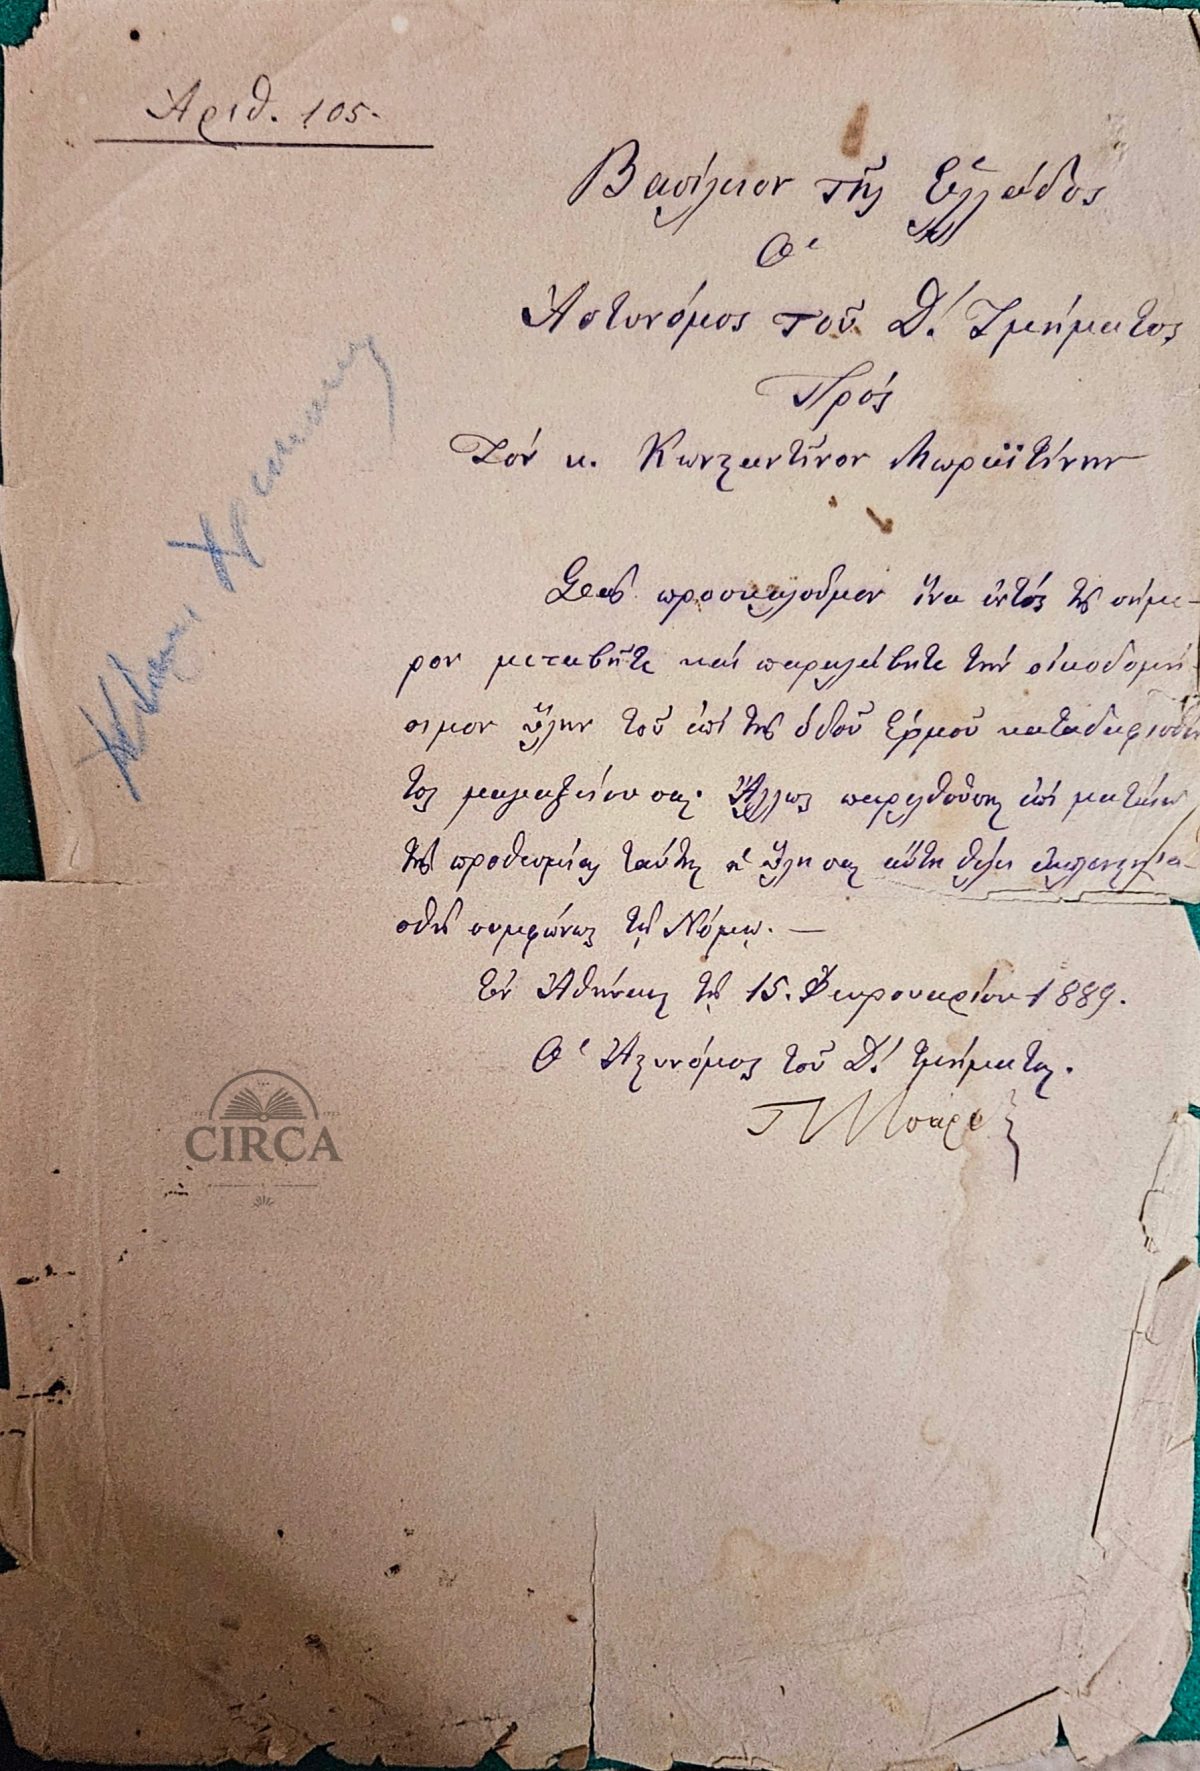 Ἀριθ. 105.
Βασίλειον τῆς Ἑλλάδος
Ὁ
Ἀστυνόμος τοῦ Δ΄. Τμήματος
Πρός
Τόν κ. Κωνσταντῖνον Μωραϊτίνην
Σᾶς προσκαλοῦμεν ἵνα ἐντός τῆς σήμε-
ρον μεταβῆτε καί παραλάβητε τήν οἰκοδομή-
σιμον ὕλην τοῦ ἐπί τῆς ὁδοῦ Ἑρμοῦ κατεδαφισθέν
τος μαγαζείου σας. Ἄλλως παρελθούσης ἐπί ματαίῳ
τῆς προθεσμίας ταύτης ἡ ὕλη σας αὕτη θέλει ἐκπλειστηρια-
σθῆ συμφώνως τῷ Νόμῳ. —
Ἐν Ἀθήναις τῇ 15. Φεβρουαρίου 1889.
Ὁ Ἀστυνόμος τοῦ Δ΄. τμήματος.
CIRCA